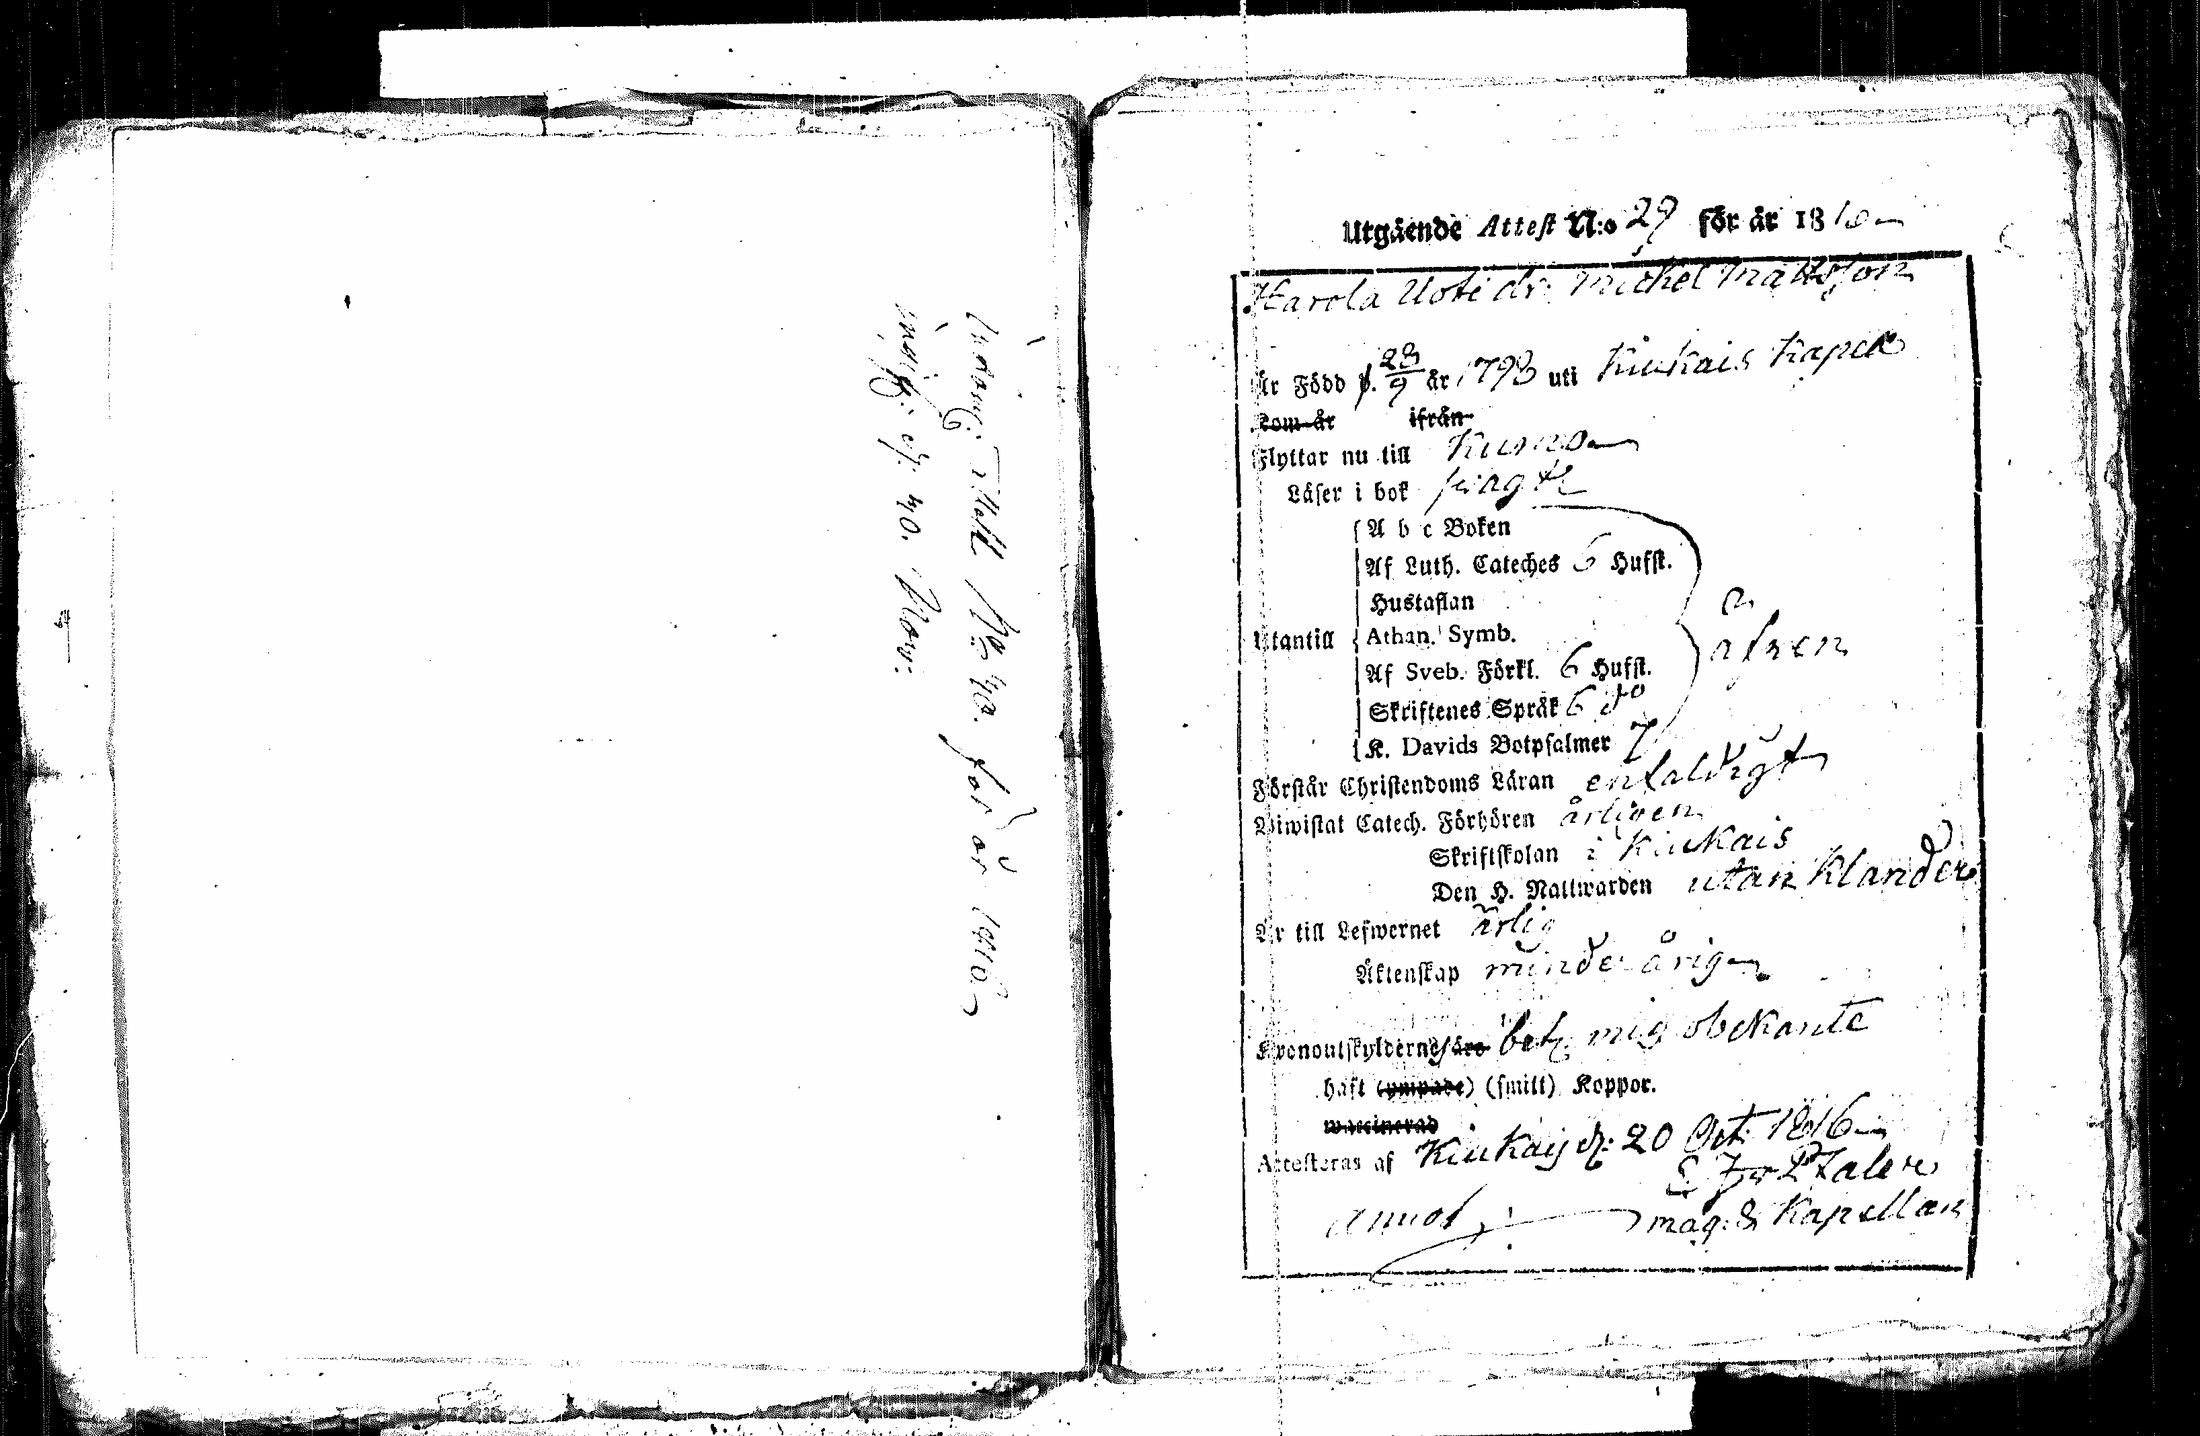 Inkom: Attest No 40. för år 1816
ingif: d: 20. Nov:
Utgående Attest N:o 29 för år 1816
Harola Uoti dr. Michel Mattsson
Är Född d. 28/9 år 1793 uti Kiukais Kapell
kom år ifrån
Flyttar nu till Kumo
Läser i bok
A b c Boken
Af Luth. Cateches 6 Hufst.
Hustaflan
Utantill Athan. Symb. äfven
Af Sveb. Förkl. 6 Hufst.
Skriftenes Språk 6 do
K. Davids Botpsalmer 7
Förstår Christendoms Läran enfaldigt
Biwistat Catech. Förhören årligen
Skriftskolan i Kiukais
Den H. Nattwarden utan klander
Är till Lefwernet ärlig
Äktenskap minderårig
Kronoutskylderne äro bet. mig obekante
haft (ympade) (smitt) Koppor.
waccinerad
Attesteras af Kiukais d: 20 Oct: 1816
mag: & Kapellan